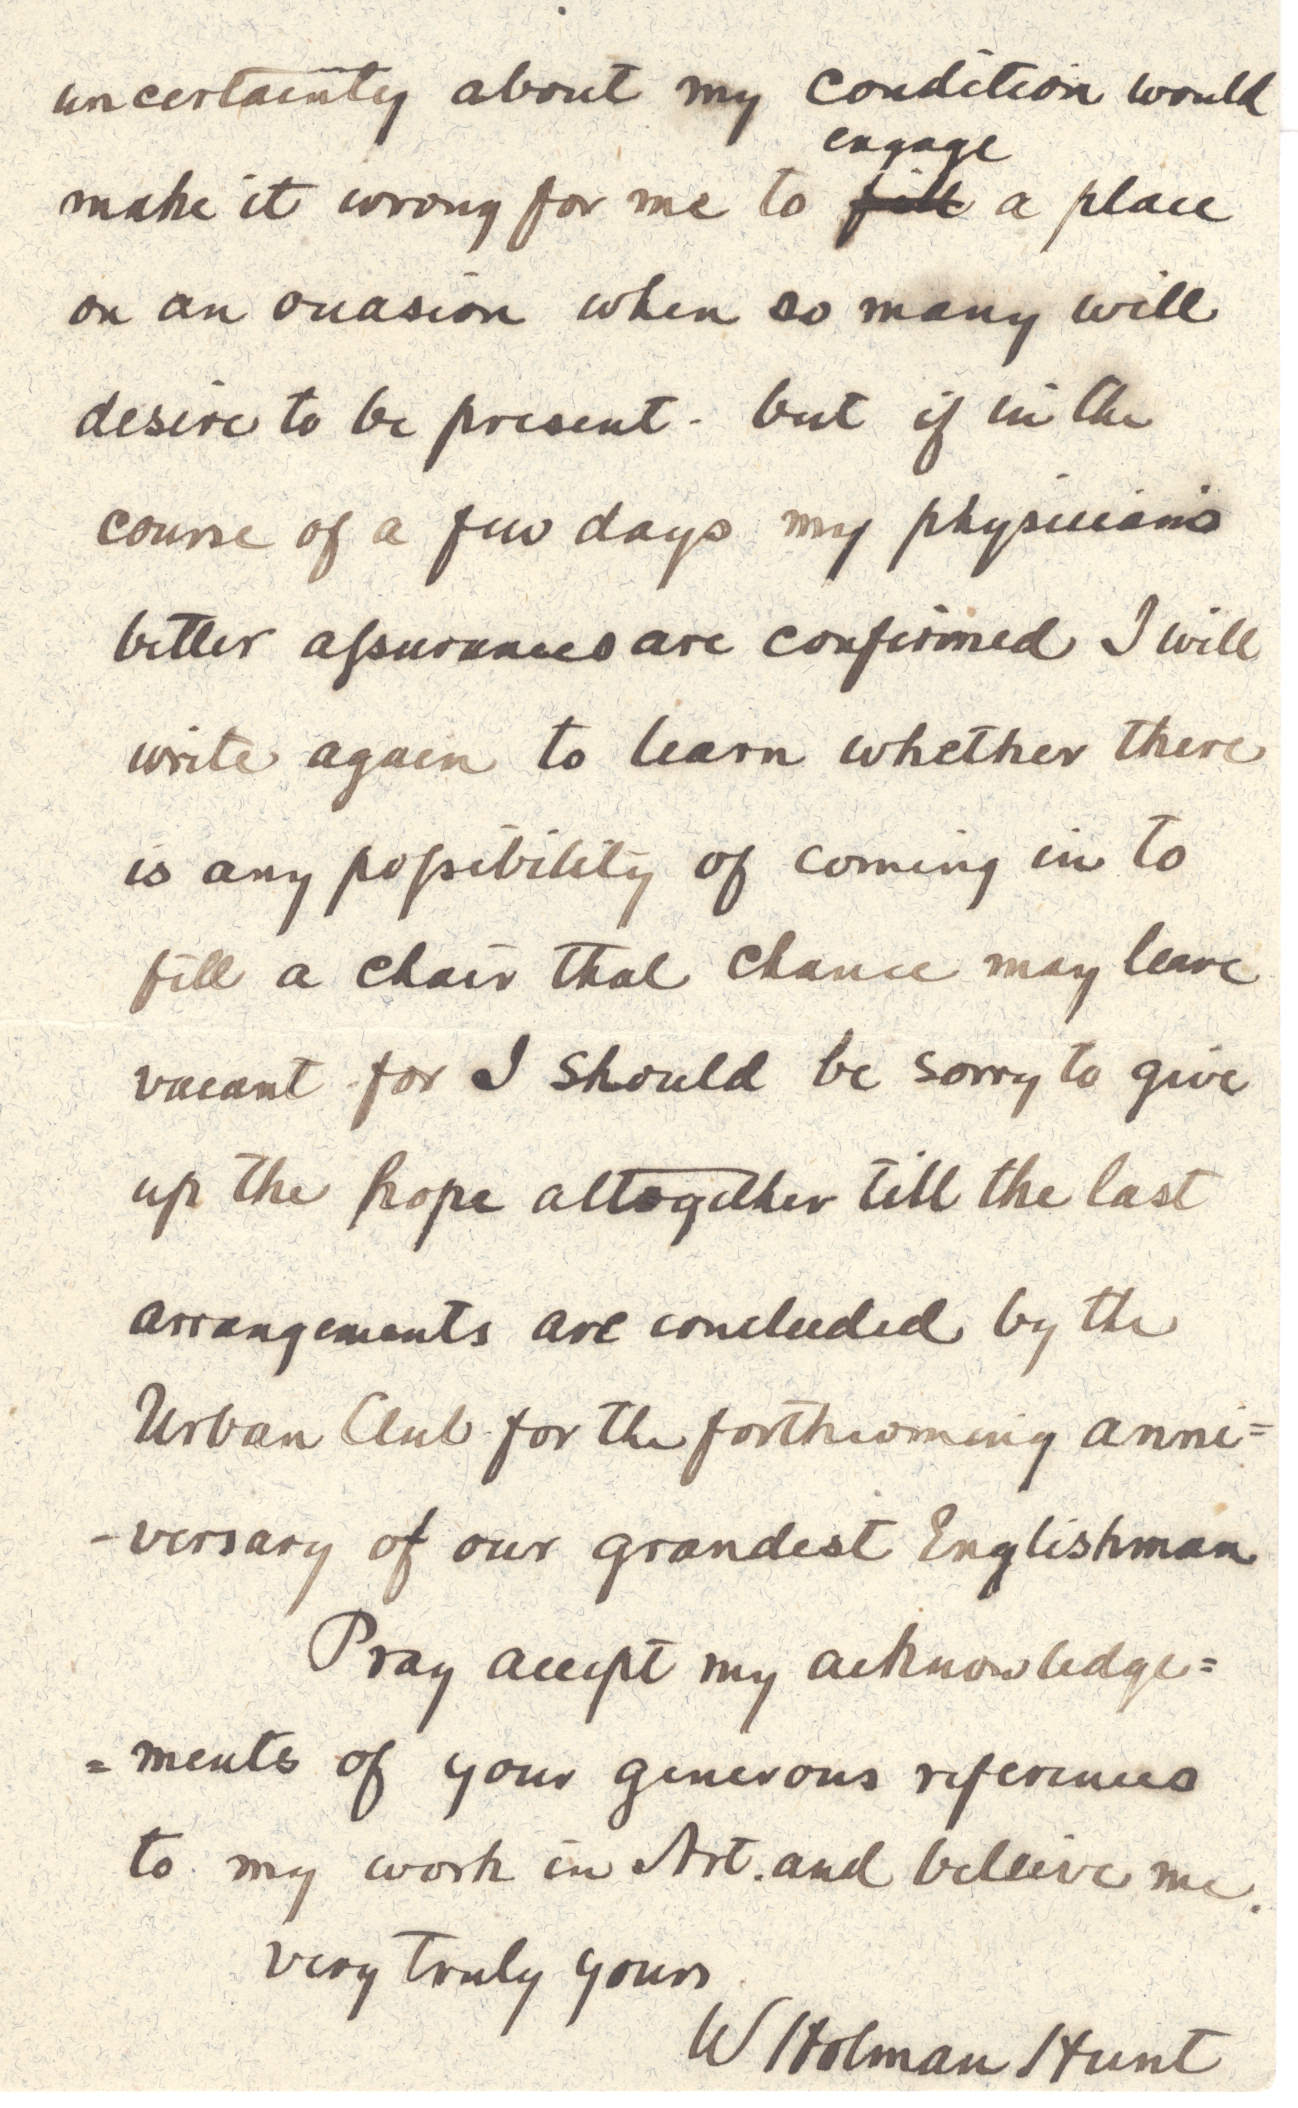 uncertainty about my condition would
engage
make it wrong for me to fill a place
on an occasion when so many will
desire to be present - but if in the
course of a few days my physicians
better aſsurances are confirmed I will
write again to learn whether there
is any poſsibility of coming in to
fill a chair that chance may leave
vacant for I should be sorry to give
up the hope altogether till the last
arrangements are concluded by the
Urban Club for the forthcoming anni=
-versary of our grandest Englishman
Pray accept my acknowledge=
=ments of your generous references
to my work in Art. and believe me.
very truly yours
W Holman Hunt